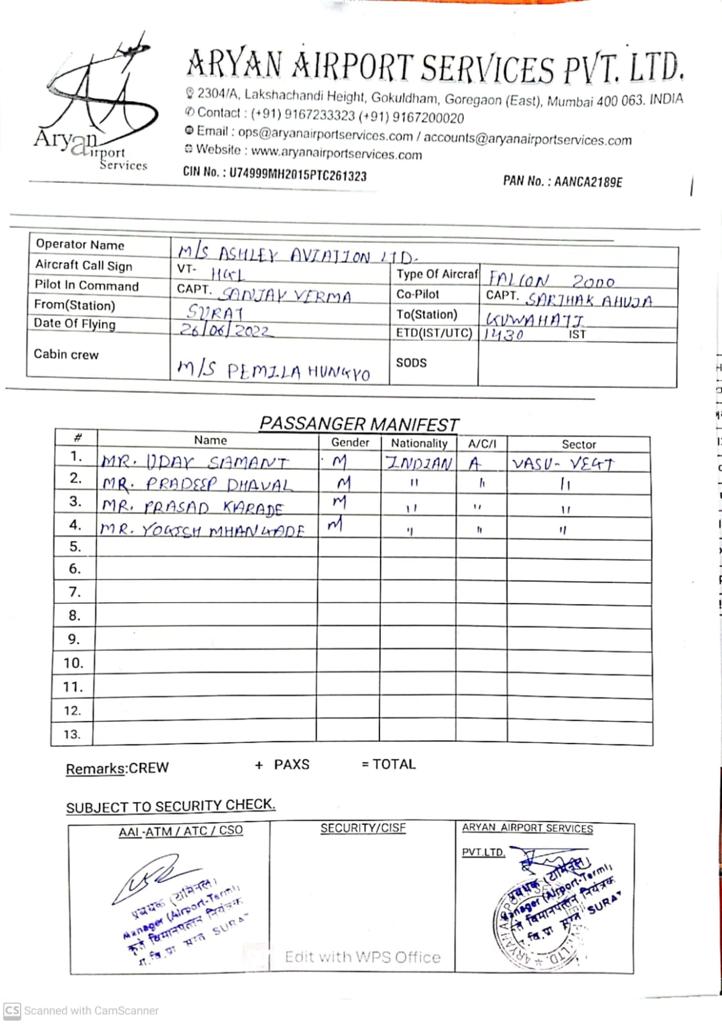 ARYAN AIRPORT SERVICES PVT. LTD.
2304/A, Lakshachandi Height, Gokuldham, Goregaon (East), Mumbai 400 063. INDIA
Contact : (+91) 9167233323 (+91) 9167200020
Email : ops@aryanairportservices.com / accounts@aryanairportservices.com
Website : www.aryanairportservices.com
CIN No. : U74999MH2015PTC261323
PAN No. : AANCA2189E
Aryan
Airport
Services
Operator Name M/S ASHLEY AVIATION LTD.
Aircraft Call Sign VT- HGL Type Of Aircraf FALCON 2000
Pilot In Command CAPT. SANJAY VERMA Co-Pilot CAPT. SARTHAK AHUJA
From(Station) SURAT To(Station) GUWAHATI
Date Of Flying 26/06/2022 ETD(IST/UTC) 1430 IST
Cabin crew M/S PEMILA HUNGYO SODS
PASSANGER MANIFEST
# Name Gender Nationality A/C/I Sector
1. MR. UDAY SAMANT M INDIAN A VASU-VEGT
2. MR. PRADEEP DHAVAL M " " "
3. MR. PRASAD KARADE M " " "
4. MR. YOGESH MHANGADE M " " "
5.
6.
7.
8.
9.
10.
11.
12.
13.
Remarks:CREW + PAXS = TOTAL
SUBJECT TO SECURITY CHECK.
AAI-ATM / ATC / CSO SECURITY/CISF ARYAN AIRPORT SERVICES
PVT.LTD.
प्रबंधक (टर्मिनल)
Manager (Airport-Term),
कृते विमानपत्तन नियंत्रक
SURAT
प्रबंधक (टर्मिनल)
Manager (Airport-Term),
कृते विमानपत्तन नियंत्रक
SURAT
Edit with WPS Office
CS Scanned with CamScanner